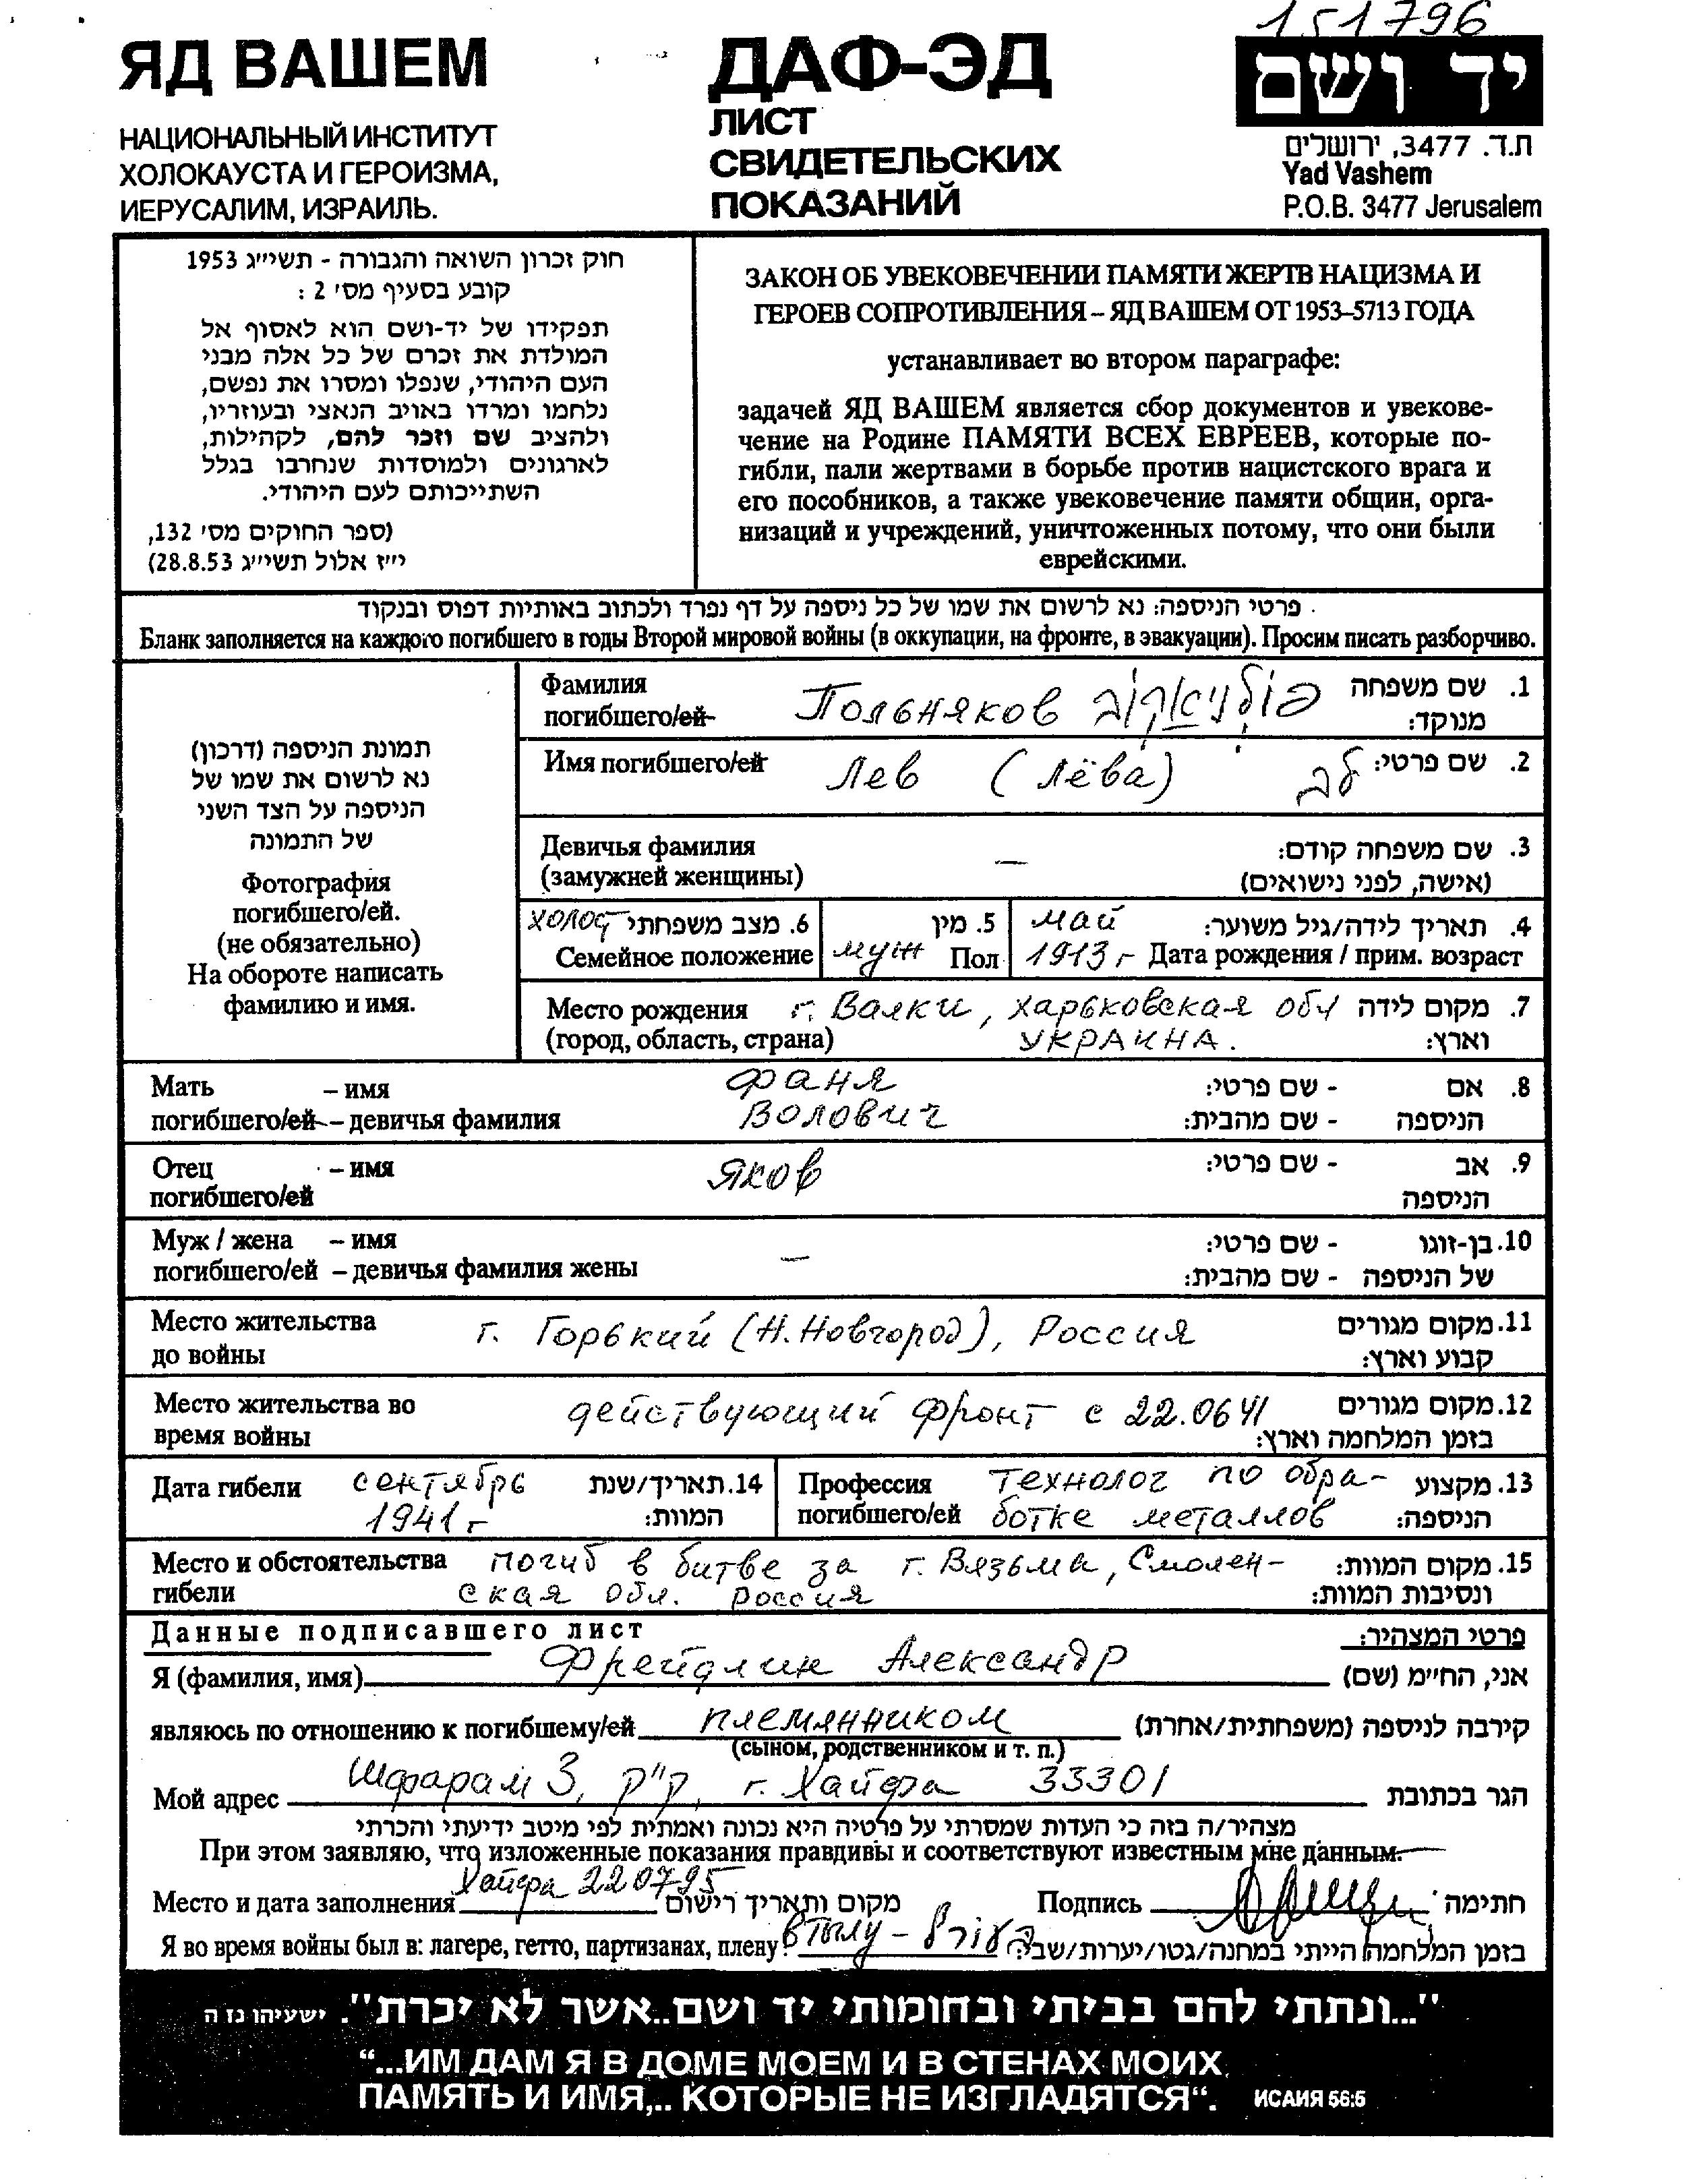 151796
ЯД ВАШЕМ
НАЦИОНАЛЬНЫЙ ИНСТИТУТ
ХОЛОКАУСТА И ГЕРОИЗМА,
ИЕРУСАЛИМ, ИЗРАИЛЬ.
ДАФ-ЭД
ЛИСТ
СВИДЕТЕЛЬСКИХ
ПОКАЗАНИЙ
יד ושם
ת.ד. 3477, ירושלים
Yad Vashem
P.O.B. 3477 Jerusalem
חוק זכרון השואה והגבורה - תשי״ג 1953
קובע בסעיף מס׳ 2 :
תפקידו של יד-ושם הוא לאסוף אל
המולדת את זכרם של כל אלה מבני
העם היהודי, שנפלו ומסרו את נפשם,
נלחמו ומרדו באויב הנאצי ובעוזריו,
ולהציב שם וזכר להם, לקהילות,
לארגונים ולמוסדות שנחרבו בגלל
השתייכותם לעם היהודי.
(ספר החוקים מס׳ 132,
י״ז אלול תשי״ג 28.8.53)
ЗАКОН ОБ УВЕКОВЕЧЕНИИ ПАМЯТИ ЖЕРТВ НАЦИЗМА И
ГЕРОЕВ СОПРОТИВЛЕНИЯ – ЯД ВАШЕМ ОТ 1953–5713 ГОДА
устанавливает во втором параграфе:
задачей ЯД ВАШЕМ является сбор документов и увекове-
чение на Родине ПАМЯТИ ВСЕХ ЕВРЕЕВ, которые по-
гибли, пали жертвами в борьбе против нацистского врага и
его пособников, а также увековечение памяти общин, орга-
низаций и учреждений, уничтоженных потому, что они были
еврейскими.
פרטי הניספה: נא לרשום את שמו של כל ניספה על דף נפרד ולכתוב באותיות דפוס ובנקוד
Бланк заполняется на каждого погибшего в годы Второй мировой войны (в оккупации, на фронте, в эвакуации). Просим писать разборчиво.
תמונת הניספה (דרכון)
נא לרשום את שמו של
הניספה על הצד השני
של התמונה
Фотография
погибшего/ей.
(не обязательно)
На обороте написать
фамилию и имя.
Фамилия Польняков פולניאקוב 1. שם משפחה
погибшего/ей מנוקד:
Имя погибшего/ей Лев (Лёва) לב 2. שם פרטי:
Девичья фамилия — 3. שם משפחה קודם:
(замужней женщины) (אישה, לפני נישואים)
холост 6. מצב משפחתי 5. מין май 4. תאריך לידה/גיל משוער:
Семейное положение муж Пол 1913 г Дата рождения / прим. возраст
Место рождения г. Валки, Харьковская обл 7. מקום לידה
(город, область, страна) УКРАИНА. וארץ:
Мать – имя Фаня - שם פרטי: 8. אם
погибшего/ей – девичья фамилия Волович - שם מהבית: הניספה
Отец – имя Яков - שם פרטי: 9. אב
погибшего/ей הניספה
Муж / жена – имя — - שם פרטי: 10. בן-זוגו
погибшего/ей – девичья фамилия жены - שם מהבית: של הניספה
Место жительства г. Горький (Н.Новгород), Россия 11. מקום מגורים
до войны קבוע וארץ:
Место жительства во действующий фронт с 22.06 41 12. מקום מגורים
время войны בזמן המלחמה וארץ:
Дата гибели сентябрь 14. תאריך/שנת Профессия Технолог по обра- 13. מקצוע
1941 г המוות: погибшего/ей ботке металлов הניספה:
Место и обстоятельства погиб в битве за г. Вязьма, Смолен- 15. מקום המוות:
гибели ская обл. Россия ונסיבות המוות:
Данные подписавшего лист פרטי המצהיר:
Я (фамилия, имя) Фрейдлин Александр אני, החי״מ (שם)
являюсь по отношению к погибшему/ей племянником קירבה לניספה (משפחתית/אחרת)
(сыном, родственником и т. п.)
Мой адрес Шфарам 3, ק"ק, г. Хайфа 33301 הגר בכתובת
מצהיר/ה בזה כי העדות שמסרתי על פרטיה היא נכונה ואמתית לפי מיטב ידיעתי והכרתי
При этом заявляю, что изложенные показания правдивы и соответствуют известным мне данным.
Место и дата заполнения Хайфа 220795 מקום ותאריך רישום Подпись חתימה
Я во время войны был в: лагере, гетто, партизанах, плену? в тылу - בעורף בזמן המלחמה הייתי במחנה/גטו/יערות/שבי?
"...ונתתי להם בביתי ובחומותי יד ושם..אשר לא יכרת". ישעיהו נז ה
“...ИМ ДАМ Я В ДОМЕ МОЕМ И В СТЕНАХ МОИХ
ПАМЯТЬ И ИМЯ,.. КОТОРЫЕ НЕ ИЗГЛАДЯТСЯ“. ИСАИЯ 56:5